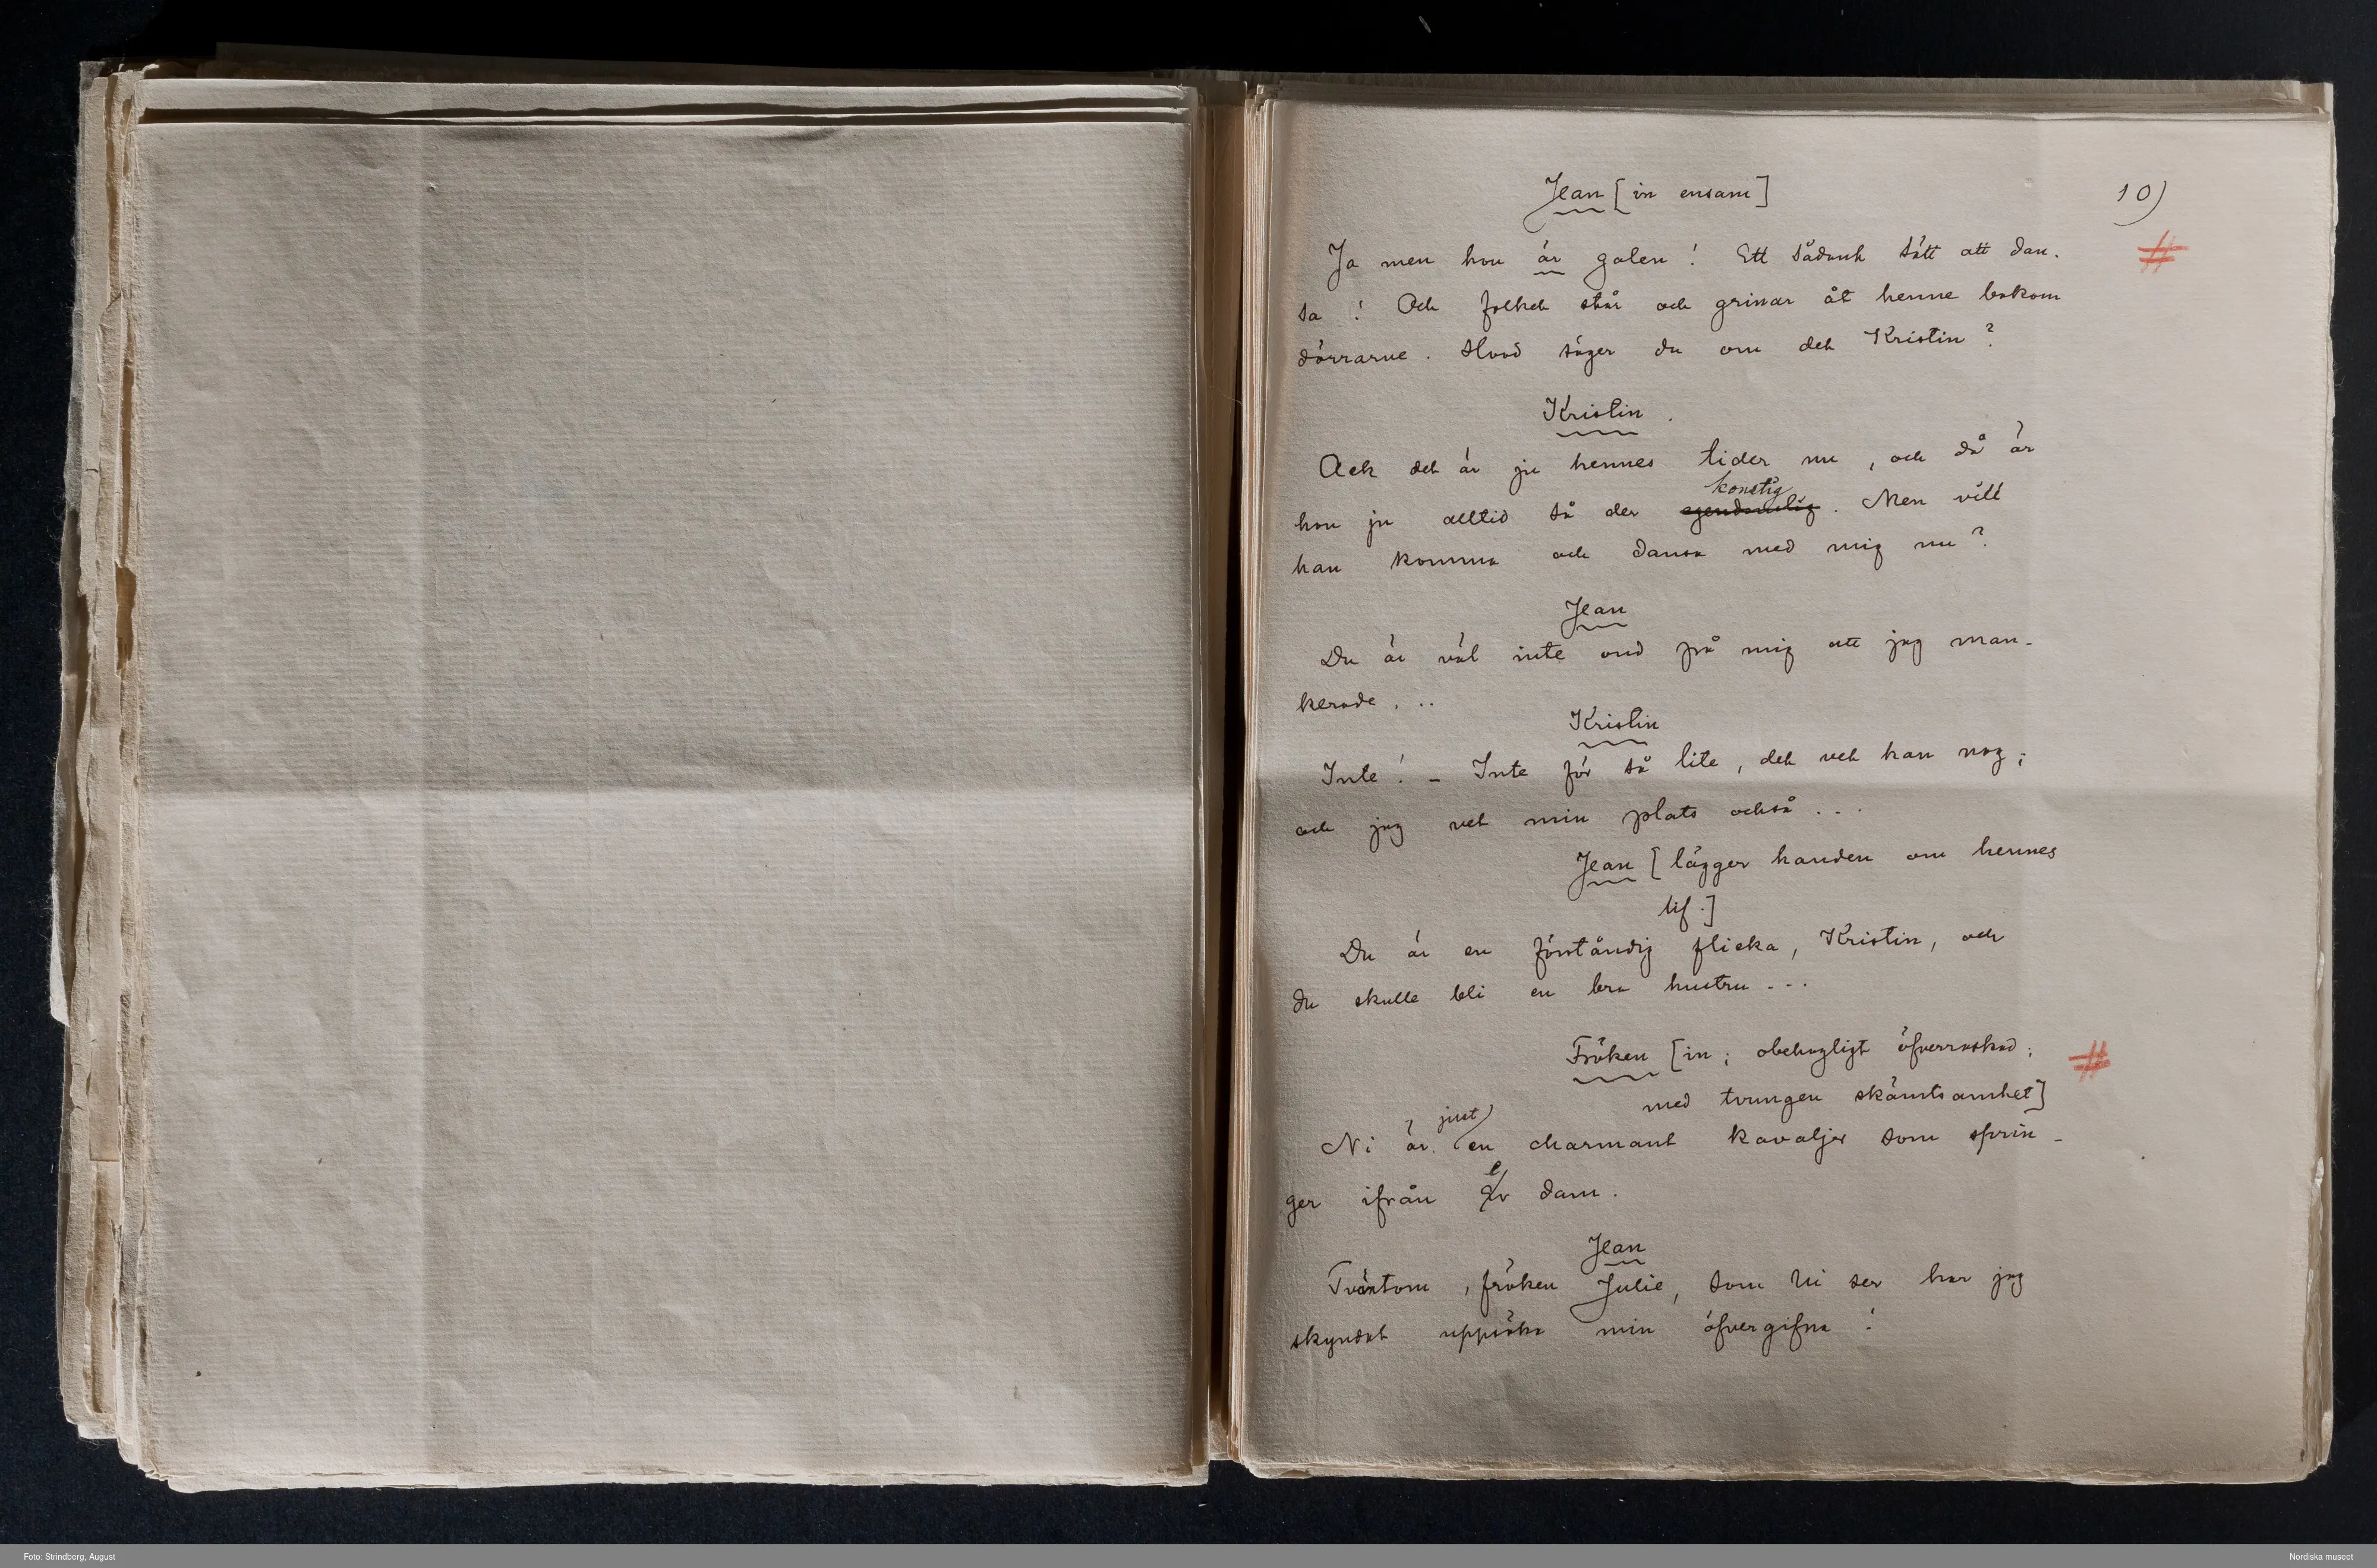 Jean [in ensam]
10)
Ja men hon är galen! Ett sådant sätt att dan-
sa! Och folket står och grinar åt henne bakom
dörrarne. Hvad säger du om det Kristin?
Kristin.
Ack det är ju hennes tider nu, och då är
konstig
hon ju alltid så der egendomlig. Men vill
han komma och dansa med mig nu?
Jean
Du är väl inte ond på mig att jag man-
kerade...
Kristin
Inte! – Inte för så lite, det vet han nog;
och jag vet min plats också...
Jean [lägger handen om hennes
lif.]
Du är en förståndig flicka, Kristin, och
du skulle bli en bra hustru...
Fröken [in; obehagligt öfverraskad;
med tvungen skämtsamhet]
just
Ni är en charmant kavaljer som sprin-
ger ifrån er dam.
Jean
Tvärtom, fröken Julie, som Ni ser har jag
skyndat uppsöka min öfvergifna!
Foto: Strindberg, August
Nordiska museet